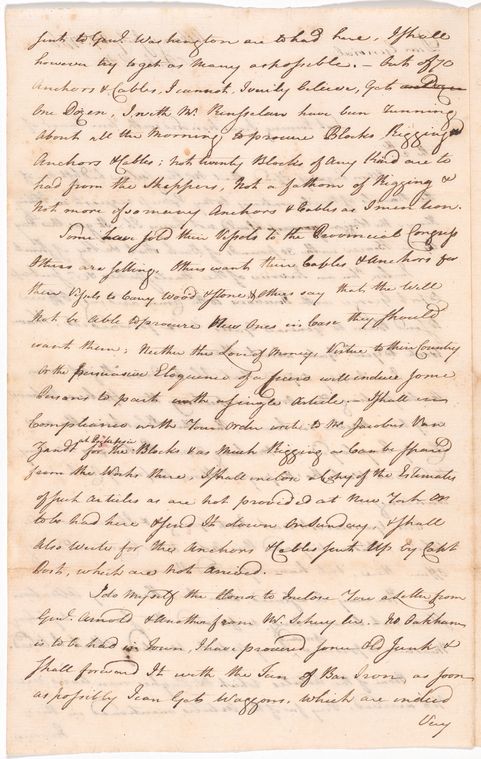 sent to Genl. Washington are to had here, I shall
however try to get as many as possible. – Out of 70
Anchors & Cables, I cannot, I verily believe, Get
One Dozen, I with Mr. Renselaer have been running
About all the Morning to procure Blocks, Rigging
Anchors & Cables; not twenty Blocks of Any Kind are to
had from the Skippers, Not a fathom of Rigging &
Not more of so many Anchors & Cables as I mention.
Some have sold their Vessels to the Provincial Congress
Others are selling. Others want their Cables & Anchors for
their Vessels to Carry Wood & Stone, & Others say that the Will
Not be Able to procure New Ones in Case they should
want them; Neither the Love of Money, Virtue to their Country
or the persuasive Eloquence of a will induce some
Persons to part with a single Article. – I shall in
Compliance with Your Order write to Mr. Jacobus Van
Zandt for the Blocks & as Much Rigging as Can be spared
from the Works there, I shall inclose a Copy of the Estimates
of such Articles as are not provided at New York or
to be had here & send It down On Sunday, & shall
Also Write for the Anchors & Cables sent Up by Capt
Post, which are Not Arrived. –
I do Myself the Honor to Inclose Your a Letter from
Genl. Arnold & Another from Mr. Schuyler. No Oakham
is to be had in Town, I have procured some Old Junk &
shall forward It with the Tun of Bar Iron as soon
as possibly I can Get Waggons, which are indeed
Very